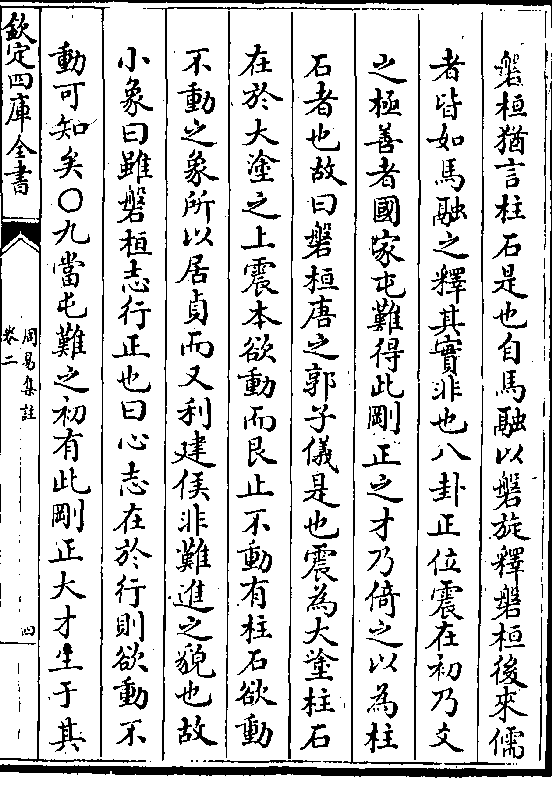 磐桓猶言柱石是也自馬融以磐旋釋磐桓後來儒
者皆如馬融之釋其實非也八卦正位震在初乃爻
之極善者國家屯難得此剛正之才乃倚之以為柱
石者也故曰磐桓唐之郭子儀是也震為大塗柱石
在於大塗之上震本欲動而艮止不動有柱石欲動
不動之象所以居貞而又利建侯非難進之貌也故
小象曰雖磐桓志行正也曰心志在於行則欲動不
動可知矣○九當屯難之初有此剛正大才生于其
欽定四庫全書
周易集註
卷二
四